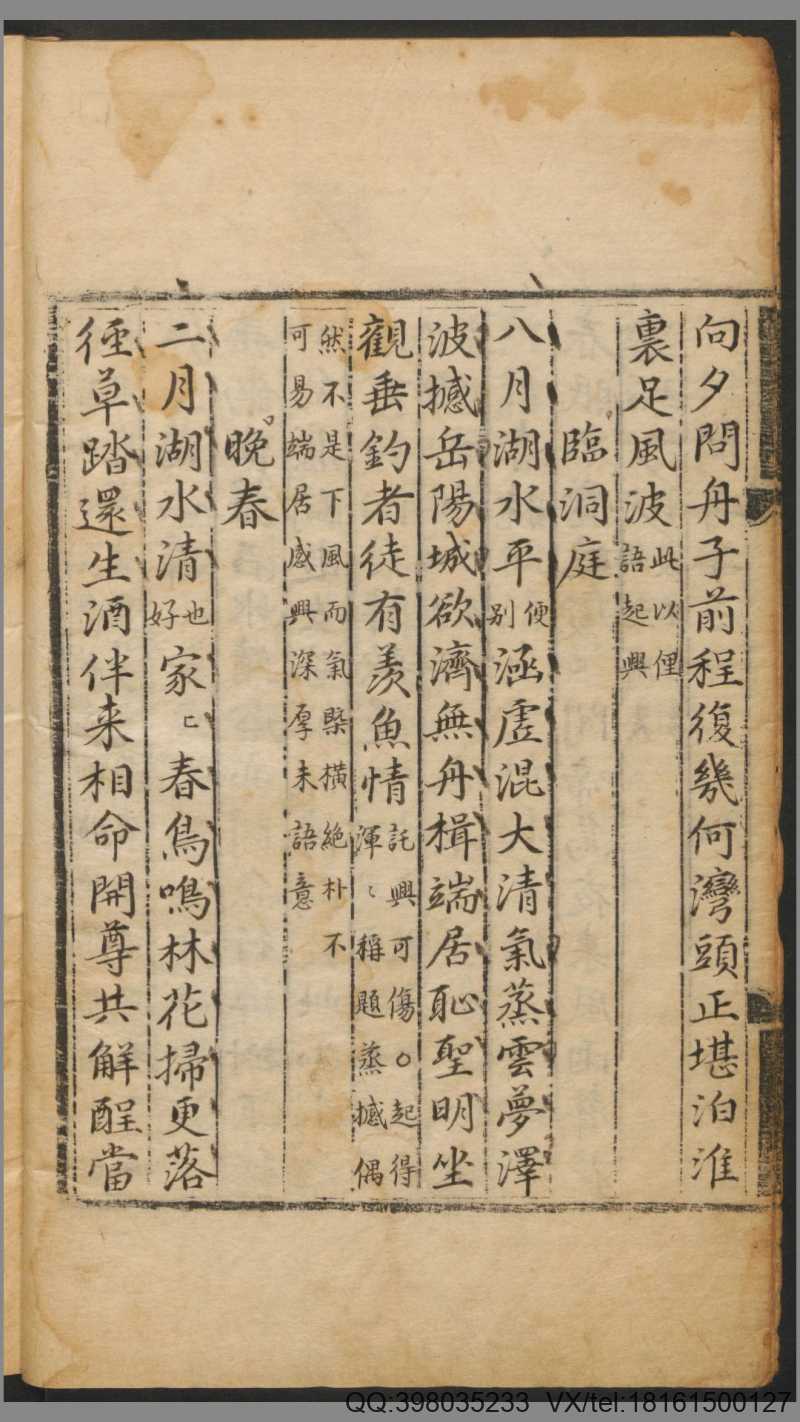 向夕問舟子前程復幾何灣頭正堪泊淮
裏足風波此以俚語起興
臨洞庭
八月湖水平便别涵虛混大清氣蒸雲夢澤
波撼岳陽城欲濟無舟楫端居恥聖明坐
觀垂釣者徒有羨魚情託興可傷○起得渾〻稱題蒸撼偶
然不是下風而氣槩橫絶朴不可易端居感興深厚未語意
晚春
二月湖水清也好家〻春鳥鳴林花掃更落
徑草踏還生酒伴来相命開尊共解酲當
QQ:398035233 VX/tel:18161500127